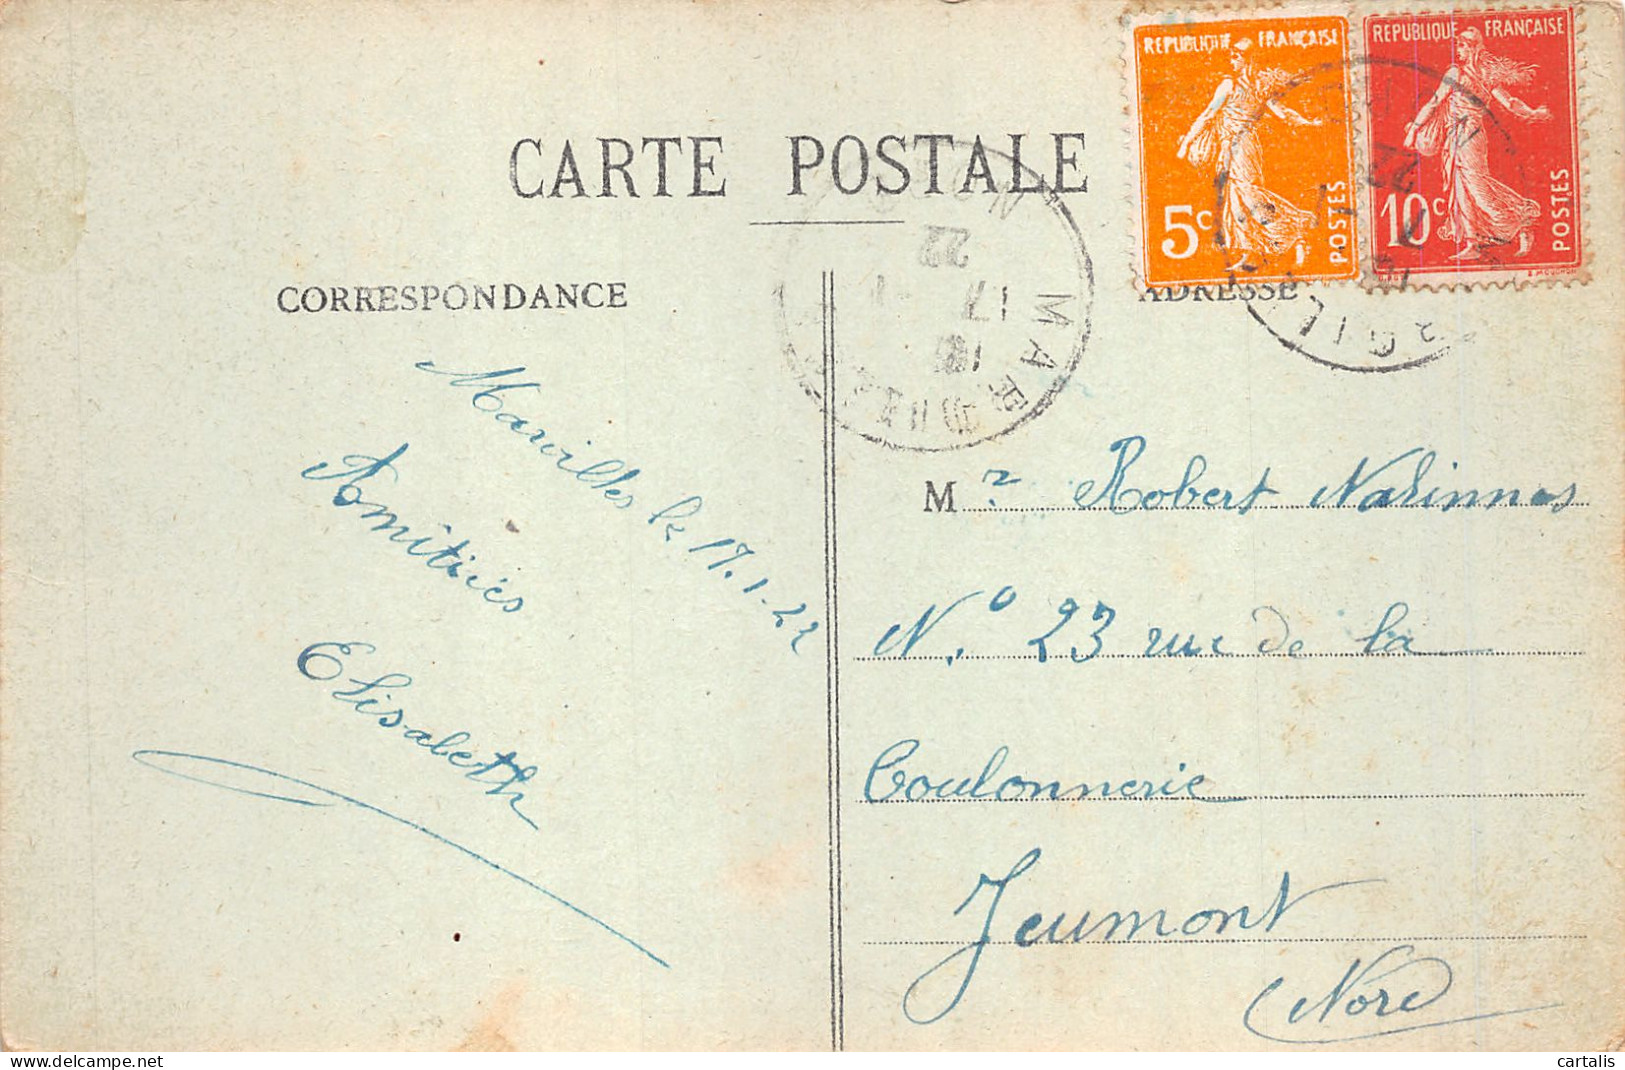 CARTE POSTALE
CORRESPONDANCE
ADRESSE
REPUBLIQUE FRANÇAISE
5c
POSTES
REPUBLIQUE FRANÇAISE
10c
POSTES
22
17 - 1
MAR
le 17.1-22
Amitiés
Elisabeth
Mr Robert
N.o 23 rue de la
Coulonnerie
Jeumont
Nord
cartalis